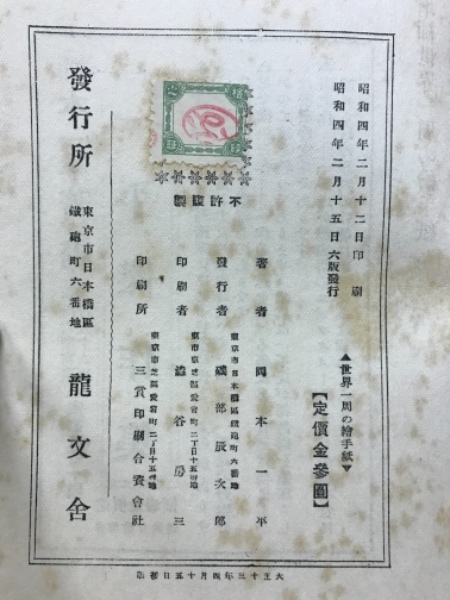 昭和四年二月十二日印刷
昭和四年二月十五日六版發行
▲世界一周の繪手紙▼
【定價金參圓】
不許複製
著者 岡本一平
東京市日本橋區鐵砲町六番地
發行者 磯部辰次郎
東京市芝區愛宕町二丁目十五番地
印刷者 澁谷房三
東京市芝區愛宕町二丁目十五番地
印刷所 三賞印刷合資會社
發行所
東京市日本橋區
鐵砲町六番地
龍文舍
大正十三年四月十五日初版